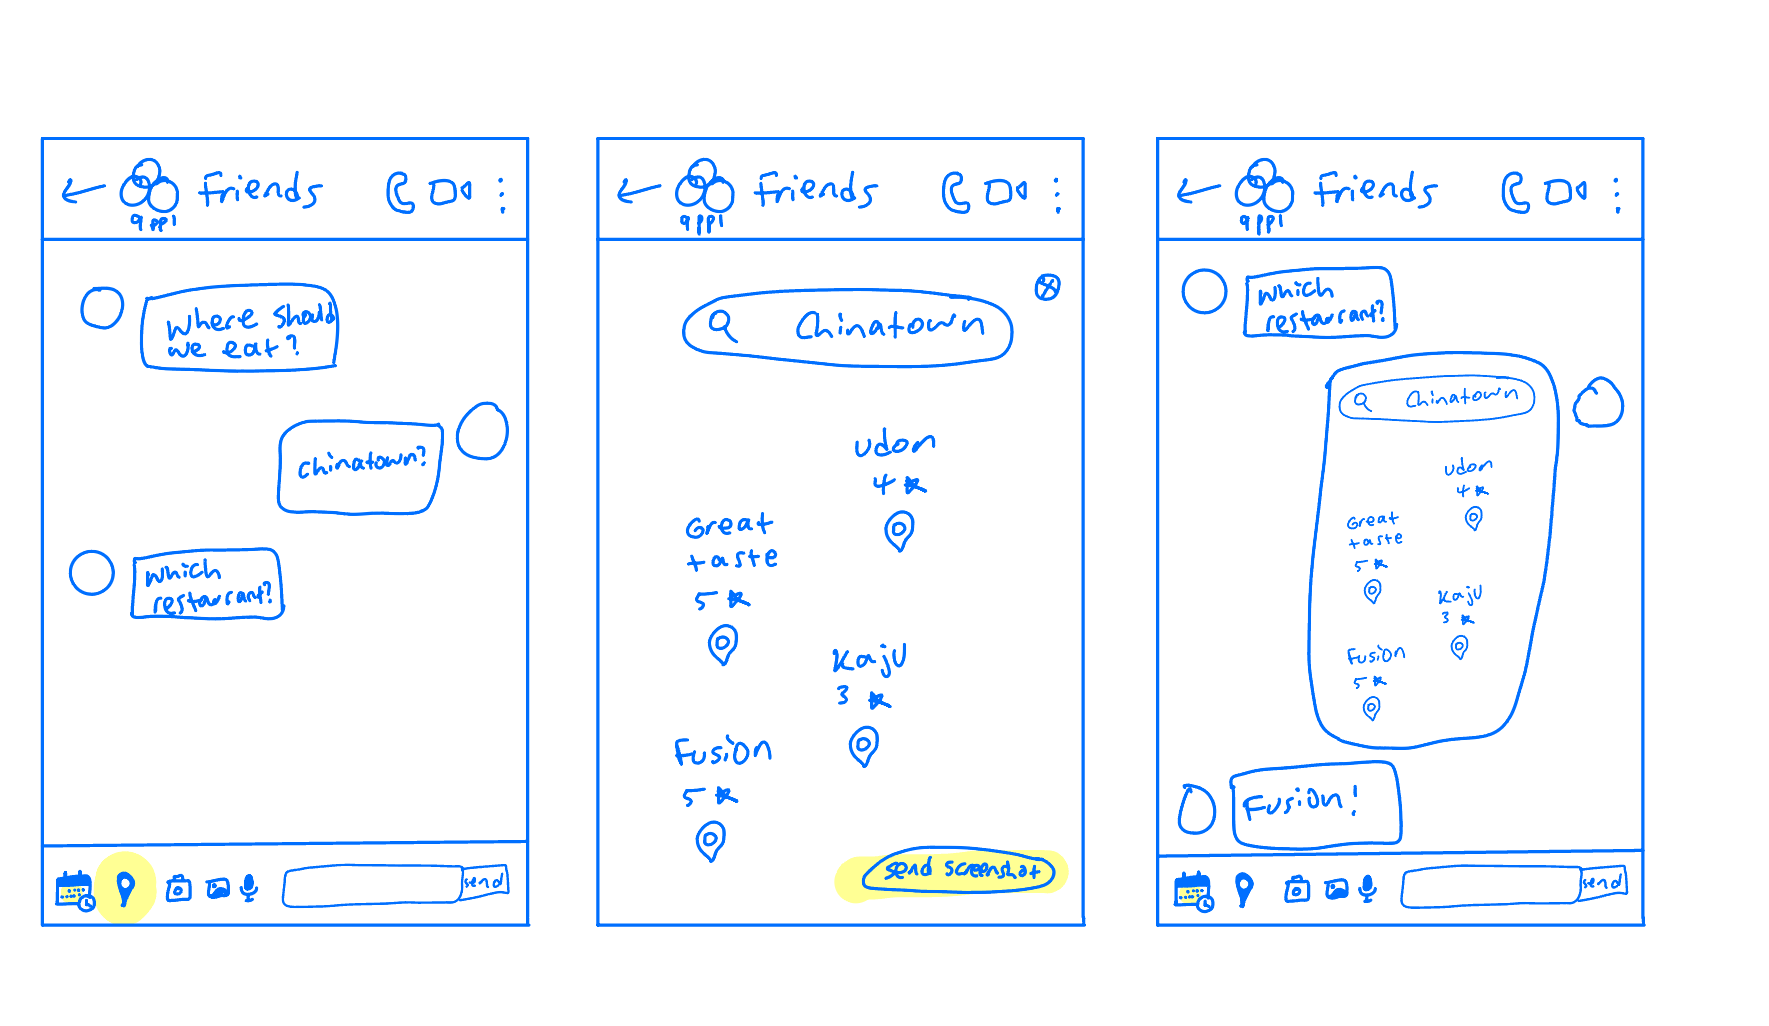 Friends
9 ppl
where should
we eat?
chinatown?
which
restaurant?
send
Friends
9 ppl
Chinatown
udon
4
Great
taste
5
Kaju
3
Fusion
5
send screenshot
Friends
9 ppl
which
restaurant?
Chinatown
udon
4
Great
taste
5
Kaju
3
Fusion
5
Fusion!
send